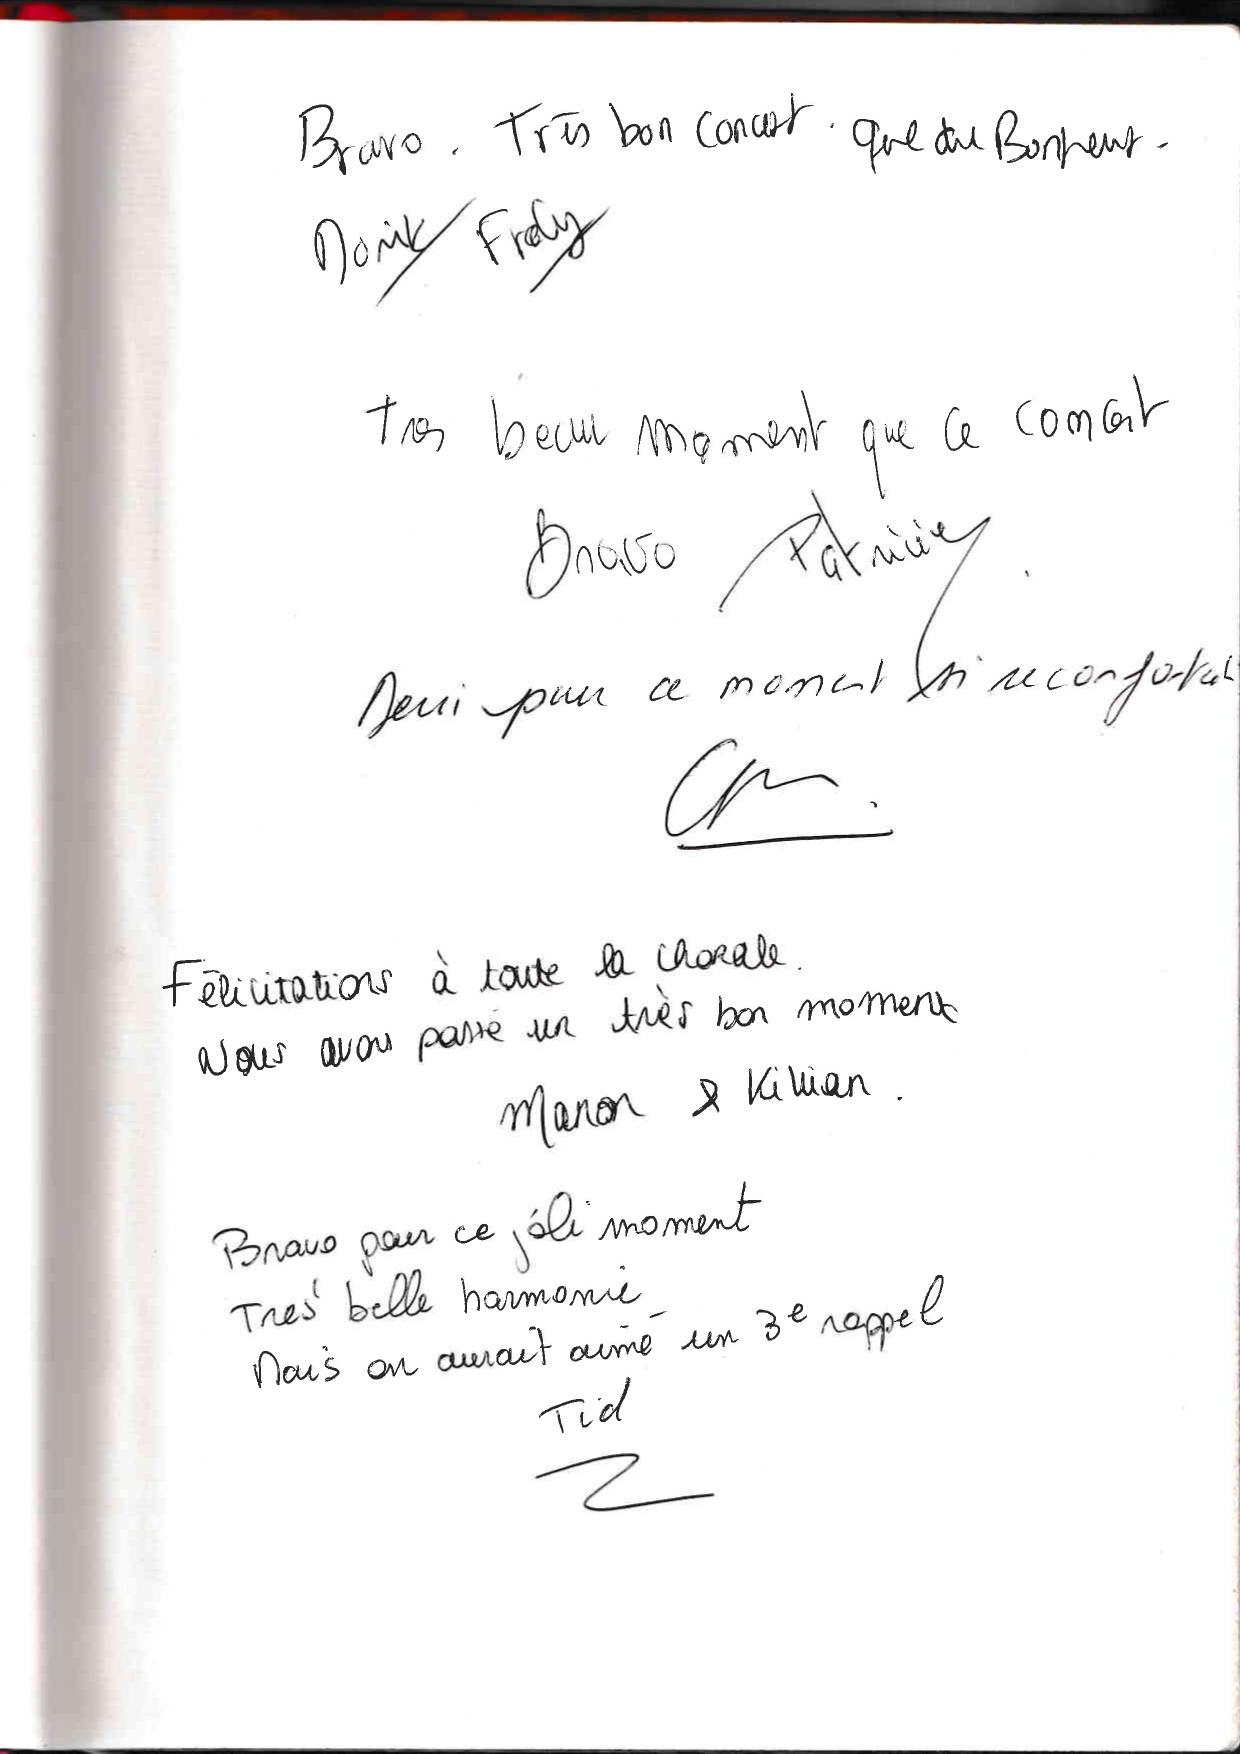 Bravo. Très bon concert. que du Bonheur.
Monik Fredy
Tres beau moment que ce concert
Bravo Patricia
Merci pour ce moment si reconfortant
Félicitations à toute la chorale.
Nous avons passé un très bon moment
Manon & Killian.
Bravo pour ce joli moment
Très belle harmonie
Mais on aurait aimé un 3e rappel
Tid